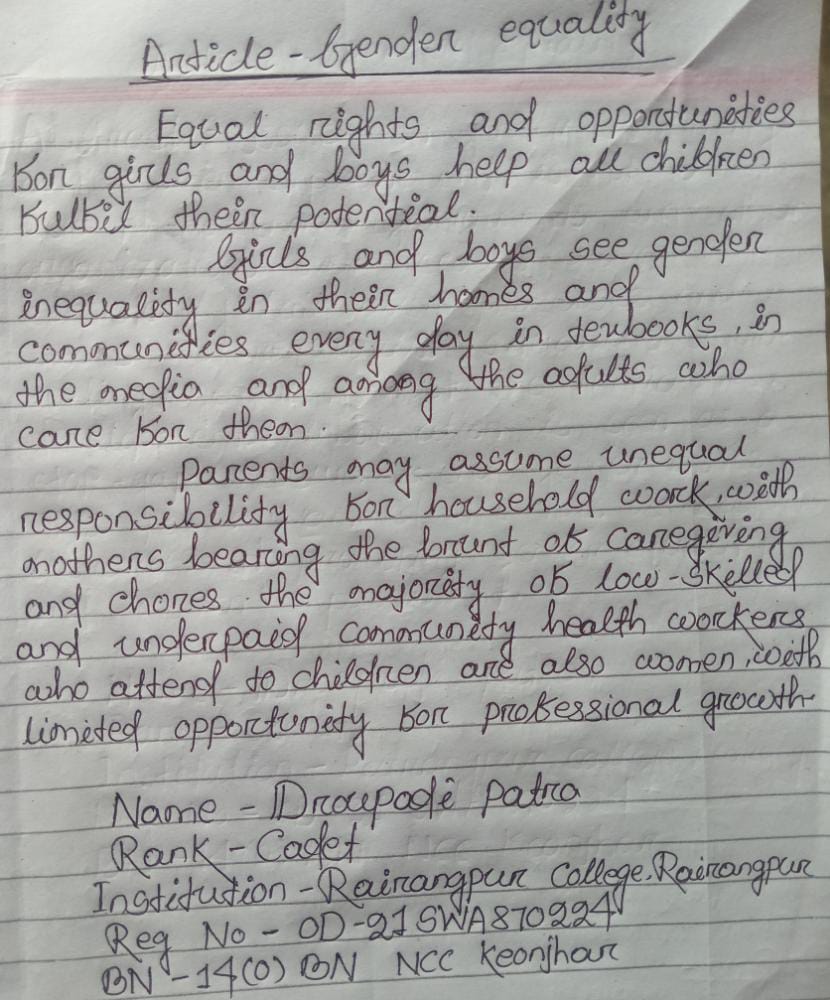 Article - Gender equality
Equal rights and opportunities
for girls and boys help all children
fulfil their potential.
Girls and boys see gender
inequality in their homes and
communities every day in texbooks, in
the media and among the adults who
care for them.
Parents may assume unequal
responsibility for household work, with
mothers bearing the brunt of caregiving
and chores. the majority of low-skilled
and underpaid community health workers
who attend to children are also women, with
limited opportunity for professional growth-
Name - Droupadi patra
Rank - Cadet
Institution - Rairangpur College. Rairangpur
Reg No - OD-21SWA870224
BN - 14(O) BN NCC Keonjhar